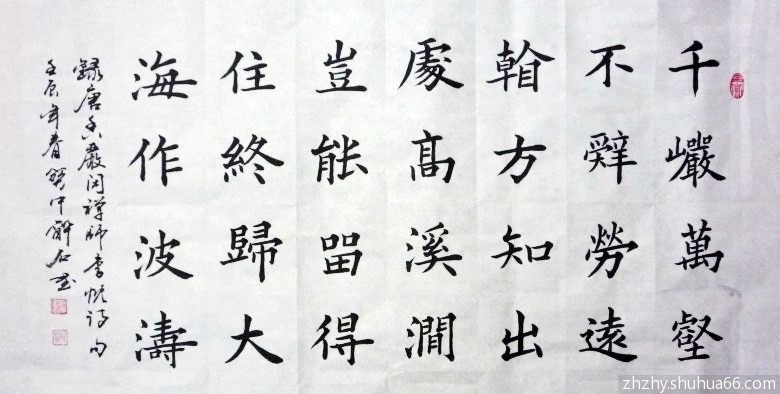 千巗萬壑
不辭勞遠
看方知出
處髙溪澗
豈能畱得
住終歸大
海作波濤
錄唐香嚴閑禪師詩句
壬辰年春中石書
zhzhy.shuhua66.com